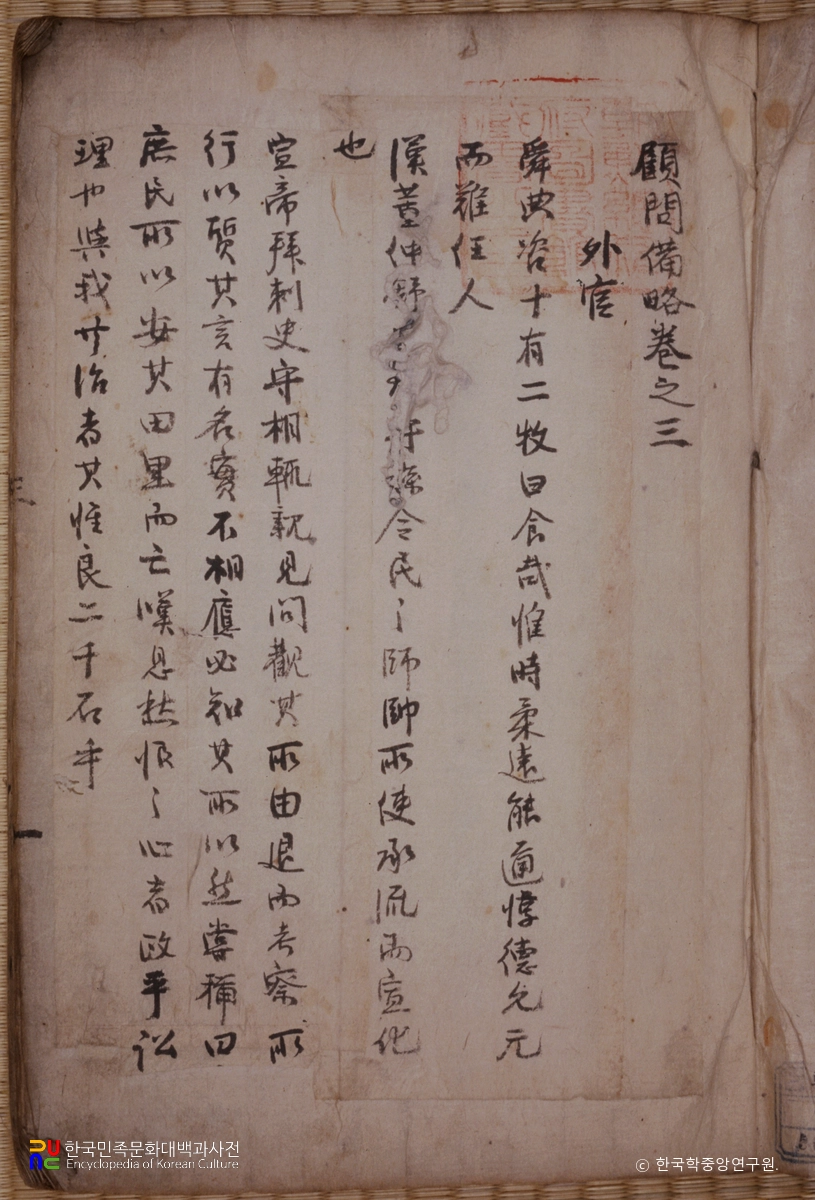 顧問備略卷之三
外官
舜典咨十有二牧曰食哉惟時柔遠能邇惇德允元
而難任人
漢董仲舒 縣令民之師帥所使承流而宣化
也
宣帝拜刺史守相輒親見問觀其所由退而考察所
行以質其言有名實不相應必知其所以然嘗稱曰
庶民所以安其田里而亡嘆息愁恨之心者政平訟
理也與我共治者其惟良二千石乎
한국민족문화대백과사전
Encyclopedia of Korean Culture
© 한국학중앙연구원.